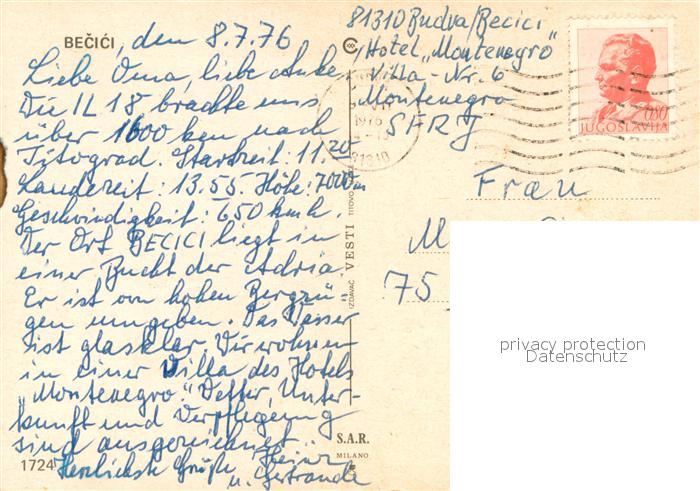 BEČIĆI, den 8.7.76
Liebe Oma, liebe Anke,
Die IL 18 brachte uns
über 1600 km nach
Titograd. Startzeit: 11.20
Landezeit: 13.55. Höhe: 7000 m
Geschwindigkeit: 650 kmh.
Der Ort BECICI liegt in
einer Bucht der Adria.
Er ist von hohen Bergzü-
gen umgeben. Das Wasser
ist glasklar. Wir wohnen
in einer Villa des Hotels
"Montenegro". Wetter, Unter-
kunft und Verpflegung
sind ausgezeichnet.
Herzlichste Grüße Heinz
u. Gertraude
1724
81310 Budva/Becici
Hotel "Montenegro"
Villa-Nr. 6
Montenegro
SFRJ
1976
81310
0,80
JUGOSLAVIJA
Frau
M
75
IZDAVAČ VESTI TITOVO
S.A.R.
MILANO
privacy protection
Datenschutz